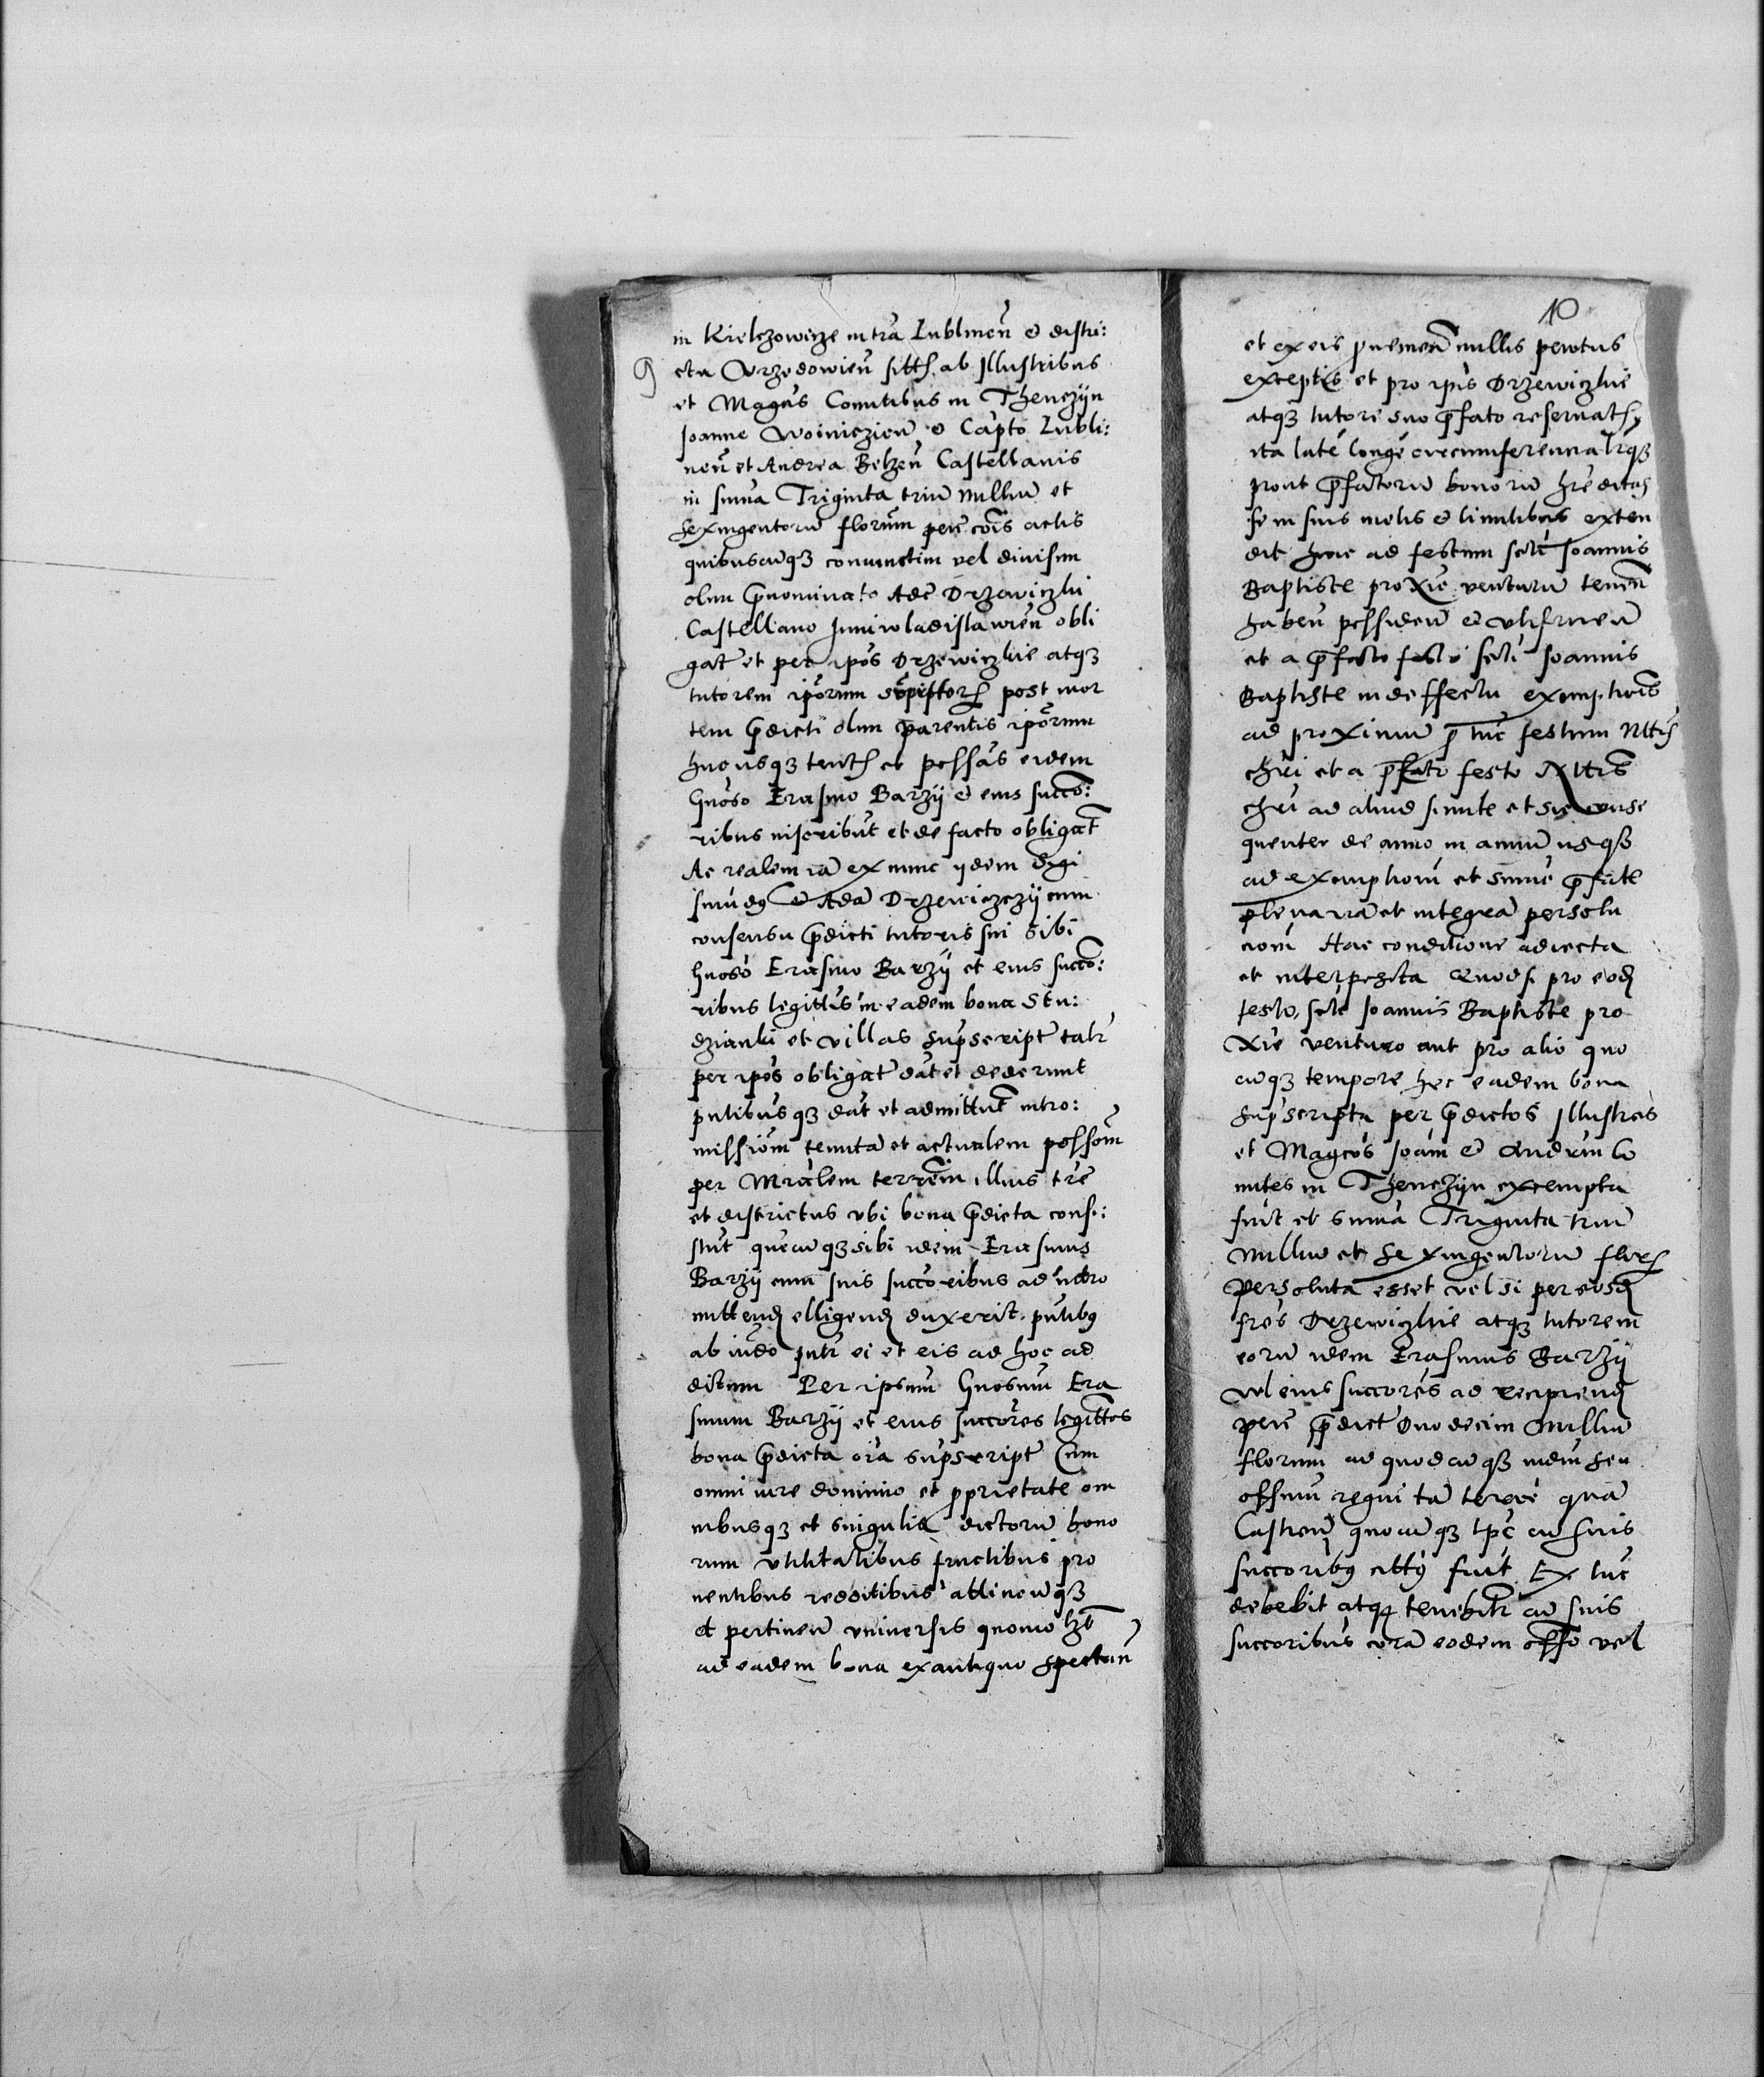 in Kielczowicze in tra Lublinen et distri:
9
ctu Urzedowien sitis ab Illustribus
et Magcis Comitibus in Thenczyn
Joanne Woinicien et Capto Lubli:
nen et Andrea Belzen Castellanis
in suma Triginta trium millium et
sexingentorum florum pecu cois actis
quibuscunqz coniunctim vel divisim
olim prenominato Ade Drzewiczki
Castellano Juniwladislawien obli
gat et per ipos Drzewiczkie atqz
tutorem iporum post mor
tem predicti olim parentis iporum
hucusqz tent et possas eidem
Gnoso Erasmo Barzy et eius succo:
ribus inscribut et de facto obligat
Ac realem iam ex nunc ydem Sigi
smudus et Adam Drzewiczczy cum
consensu predicti tutoris sui sibi
Gnoso Erasmo Barzy et eius succo:
ribus legittis in eadem bona Stu:
dzianki et villas supscript talr
per ipos obligat dat et dederunt
pntibusqz dat et admittut intro:
missiom tenuta et actualem possom
per Mrialem terrem illius tre
et districtus ubi bona predicta consi:
stut quecunqz sibi idem Erasmus
Barzy cum suis succoribus ad intro
mittend elligend duxerit pntibus
ab iudo pntr ei et eis ad hoc ad
ditum Per ipsum Gnosum Era
smum Barzy et eius succores legittos
bona predicta oia supscript Cum
omni iure dominio et proprietate om
nibusqz et singulis dictorum bono
rum utilitatibus fructibus pro
ventibus redditibus attinenqz
et pertinen universis quomo lzt
ad eadem bona ex antiquo spectan
10
et ex eis provenien nullis penitus
exceptis et pro ipis Drzewiczkie
atqz tutore suo prefato reservatis
ita late longe circumferencialrqz
prout prefatorum bonorum hreditas
se in suis metis et limitibus exten
dit hinc ad festum scti Joannis
Baptiste proxie venturum tenen
haben possiden et utifruen
et a prefato festo scti Joannis
Baptiste in deffectu exemptiois
ad proximum pro tuc festum Nttis
chri et a prefato festo Nttis
chri ad aliud simile et sic conse
quenter de anno in annum usqz
ad exemptiom et sume prefate
plenariam et integram persolu
ciom Hac conditione adiecta
et interposita Quod si pro eod
festo scti Joannis Baptiste pro
xie venturo aut pro alio quo
cunqz tempore hec eadem bona
supscripta per predictos Illustres
et Magcos Joam et Andream Co
mites in Thenczyn exempta
fuit et suma Triginta trium
millium et sexingentorum flor
persoluta esset vel si per eosd
fres Drzewiczkie atqz tutorem
eorum idem Erasmus Barzy
vel eius succores ad recipiend
pecu predict Duodecim millium
florum ad quodcunqz iudm seu
offium regni tam terre quam
Castren quocunqz tpe cum suis
succoribus cittus fuit Ex tuc
debebit atqz tenebitr cum suis
succoribus coram eodem offo vel